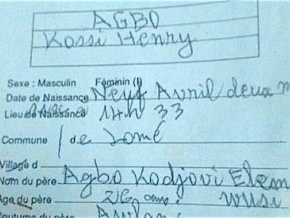 AGBO
Kossi Henry
Sexe : Masculin Féminin (l)
Date de Naissance Neuf Avril deux m
Lieu de Naissance 14h 33
Commune / de Lomé
Village d
Nom du père Agbo Kodjovi Elem
Age du père 26 ans